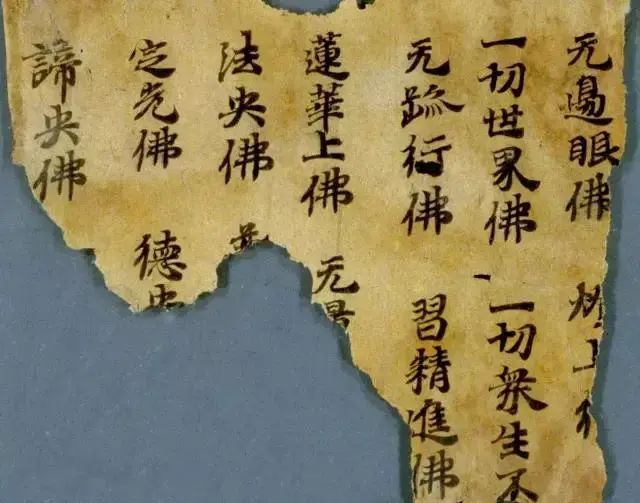 无邊眼佛 上
一切世界佛 一切衆生不
无跡行佛 習精進佛
蓮華上佛 无
法央佛
定光佛 德
諦央佛